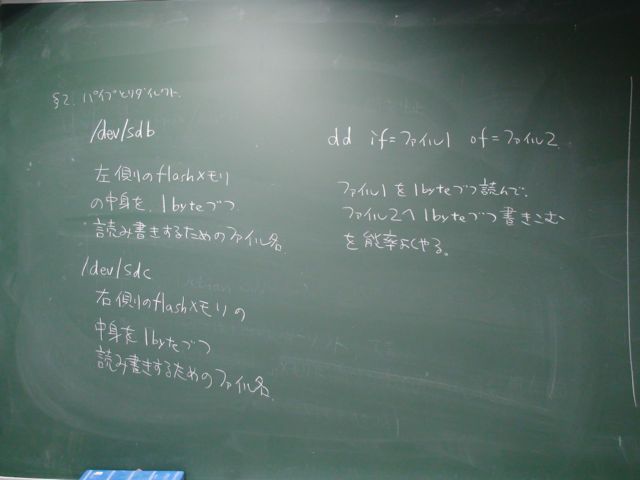 §2. パイプとリダイレクト.
/dev/sdb
左側りのflashメモリ
の中身を、1byteづつ
読み書きするためのファイル名.
/dev/sdc
右側りのflashメモリの
中身を1byteづつ
読み書きするためのファイル名.
dd if=ファイル1 of=ファイル2
ファイル1を1byteづつ読んで、
ファイル2へ1byteづつ書きこむ
を能率よくやる。